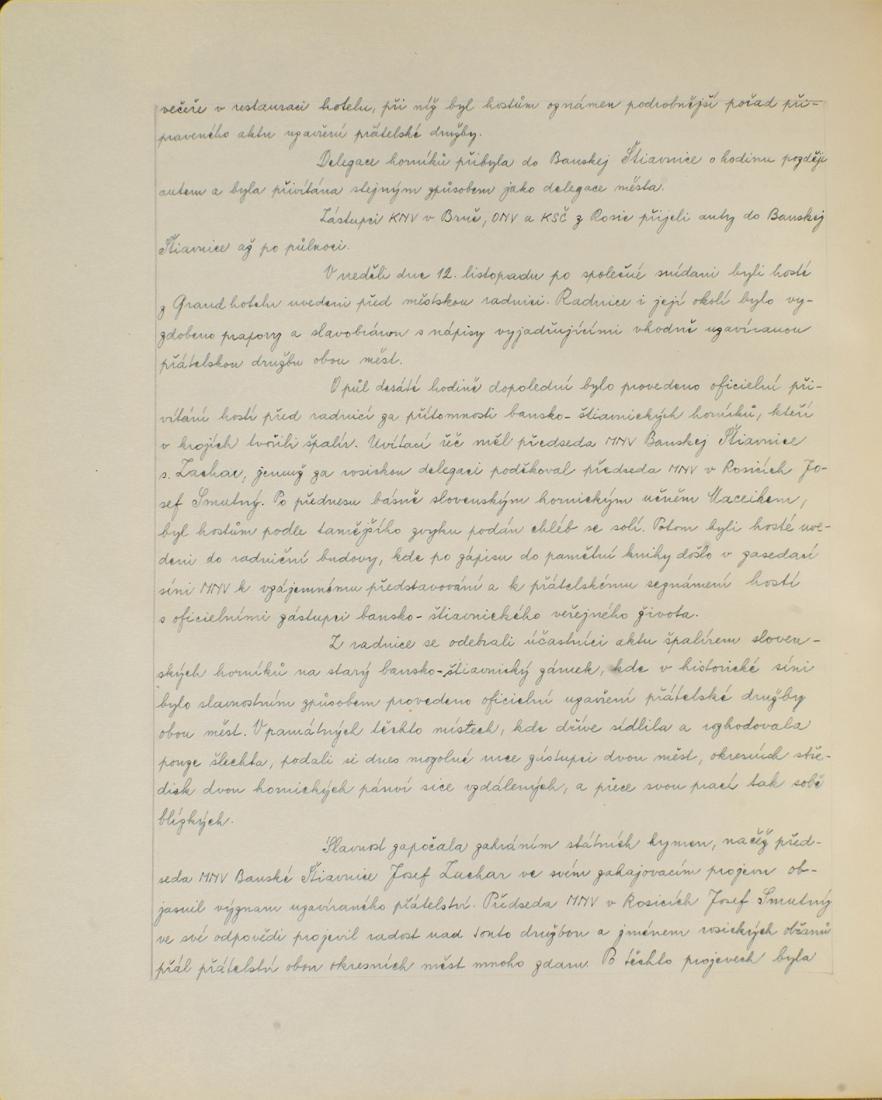 večeře v restauraci hotelu, při níž byl hostům oznámen podrobnější pořad při-
praveného aktu uzavření přátelské družby.
Delegace horníků přibyla do Banskej Štiavnice o hodinu později
autem a byla přivítána stejným způsobem jako delegace města.
Zástupci KNV v Brně, ONV a KSČ z Rosic přijeli auty do Banskej
Štiavnice až po půlnoci.
V neděli dne 12. listopadu po společné snídani byli hosté
z Grand hotelu uvedeni před městskou radnici. Radnice i její okolí bylo vy-
zdobeno prapory a slavobránou s nápisy vyjadřujícími vhodně uzavíranou
přátelskou družbu obou měst.
O půl desáté hodině dopolední bylo provedeno oficielní při-
vítání hostí před radnicí za přítomnosti bansko-štiavnických horníků, kteří
v krojích tvořili špalír. Uvítací řeč měl předseda MNV Banskej Štiavnice
s. Zachar, jemuž za rosickou delegaci poděkoval předseda MNV v Rosicích Jo-
sef Smutný. Po přednesu básně slovenským hornickým učněm Maceikem,
byl hostům podle tamějšího zvyku podán chléb se solí. Potom byli hosté uve-
deni do radniční budovy, kde po zápisu do pamětní knihy došlo v zasedací
síni MNV k vzájemnému představování a k přátelskému seznámení hostí
s oficielními zástupci bansko-štiavnického veřejného života.
Z radnice se odebrali účastníci aktu špalírem sloven-
ských horníků na starý bansko-štiavnický zámek, kde v historické síni
bylo slavnostním způsobem provedeno oficielní uzavření přátelské družby
obou měst. V památných těchto místech, kde dříve sídlila a rozhodovala
pouze šlechta, podali si dnes mozolné ruce zástupci dvou měst, okresních stře-
disk dvou hornických pánví sice vzdálených, a přece svou prací tak sobě
blízkých.
Slavnost započala zahráním státních hymen, načež před-
seda MNV Banské Štiavnice Josef Zachar ve svém zahajovacím projevu ob-
jasnil význam uzavíraného přátelství. Předseda MNV v Rosicích Josef Smutný
ve své odpovědi projevil radost nad touto družbou a jménem rosických občanů
přál přátelství obou okresních měst mnoho zdaru. Po těchto projevech byla